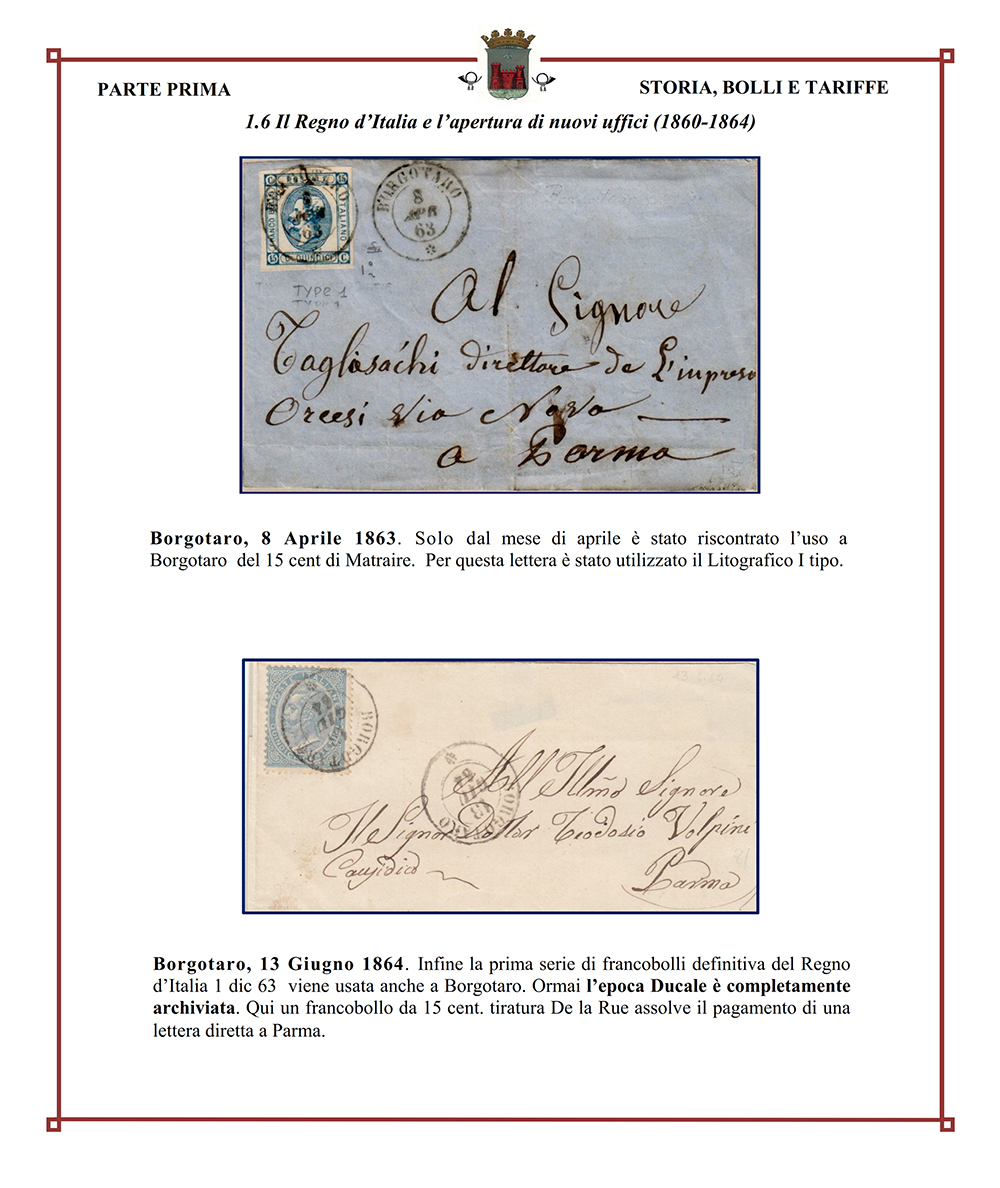 PARTE PRIMA
STORIA, BOLLI E TARIFFE
1.6 Il Regno d’Italia e l’apertura di nuovi uffici (1860-1864)
BORGOTARO
8
APR
63
TYPE 1
Al Signore
Tagliasachi direttore de L'impresa
Orcesi Via Nova
a Parma
Borgotaro, 8 Aprile 1863. Solo dal mese di aprile è stato riscontrato l’uso a
Borgotaro del 15 cent di Matraire. Per questa lettera è stato utilizzato il Litografico I tipo.
BORGOTARO
13
GIU
64
All Illmo Signore
Il Signor Teodosio Volpini
Causidico
Parma
Borgotaro, 13 Giugno 1864. Infine la prima serie di francobolli definitiva del Regno
d’Italia 1 dic 63 viene usata anche a Borgotaro. Ormai l’epoca Ducale è completamente
archiviata. Qui un francobollo da 15 cent. tiratura De la Rue assolve il pagamento di una
lettera diretta a Parma.